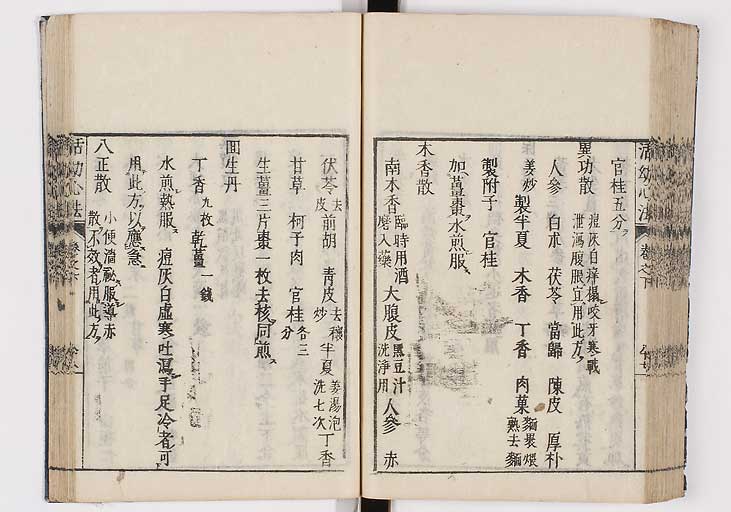 活幼心法 卷之下
官桂五分
異功散 痘灰白痒塌咬牙寒戰泄瀉腹脹宜用此方
人參 白朮 茯苓 當歸 陳皮 厚朴
姜炒 製半夏 木香 丁香 肉菓 麵裹煨熟去麵
製附子 官桂
加薑棗水煎服
木香散
南木香 臨時用酒磨入藥 大腹皮 黑豆汁洗淨用 人參 赤
茯苓 去皮 前胡 青皮 去穰炒 半夏 姜湯泡洗七次 丁香
甘草 柯子肉 官桂 各三分
生薑三片棗一枚去核同煎
回生丹
丁香 九枚 乾薑 一錢
水煎熱服 痘灰白虛寒吐瀉手足冷者可
用此方以應急
八正散 小便濇祕服導赤散不效者用此方
活幼心法 卷之下